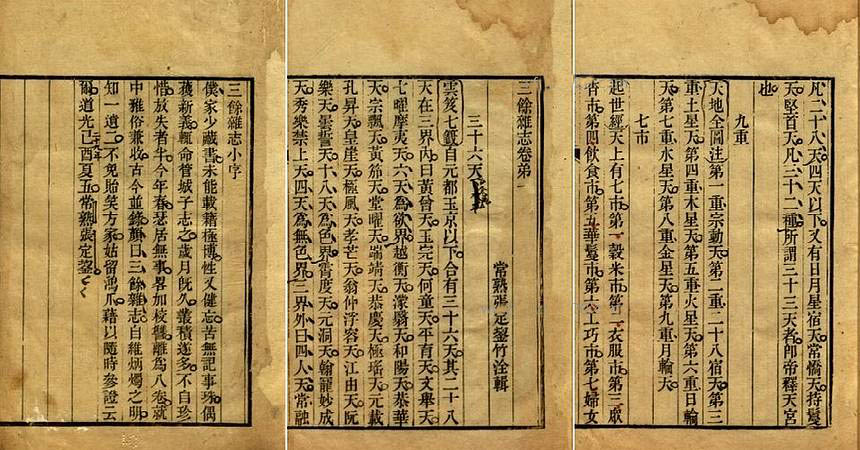 三餘雜志小字
僕家少藏書未能載籍極博性又健忘苦無記事珠偶
獲新義輒命管城子志之歲月旣久叢積遂多不自珍
惜放失者半今年春瑟居無事畧加校讐離爲八卷就
中雅俗兼收古今並錄顏曰三餘雜志自維炳燭之明
知一遺二不免貽笑方家姑留鴻爪藉以隨時參證云
爾道光己酉夏五常熟張定鋆
三餘雜志卷第一
常熟張定鋆竹淦輯
三十六天
雲笈七籤自元都玉京以下合有三十六天其二十八
天在三界內曰黃曾天玉完天何童天平育天文舉天
七曜摩夷天六天爲欲界越衡天濛翳天和陽天恭華
天宗飄天黃笳天堂曜天端靖天恭慶天極瑤天元載
孔昇天皇崖天極風天孝芒天翁仲浮容天江由天阮
樂天曇誓天十八天爲色界霄度天元洞天翰寵妙成
天秀樂禁上天四天爲無色界三界外曰四人天常融
凡二十八天四天以下又有日月星宿天常憍天持鬘
天堅首天凡三十二種所謂三十三天者卽帝釋天宮
也
九重
天地全圖注第一重宗動天第二重二十八宿天第三
重土星天第四重木星天第五重火星天第六重日輪
天第七重水星天第八重金星天第九重月輪天
七市
起世經天上有七市第一穀米市第二衣服市第三眾
香市第四飲食市第五華鬘市第六工巧市第七婦女